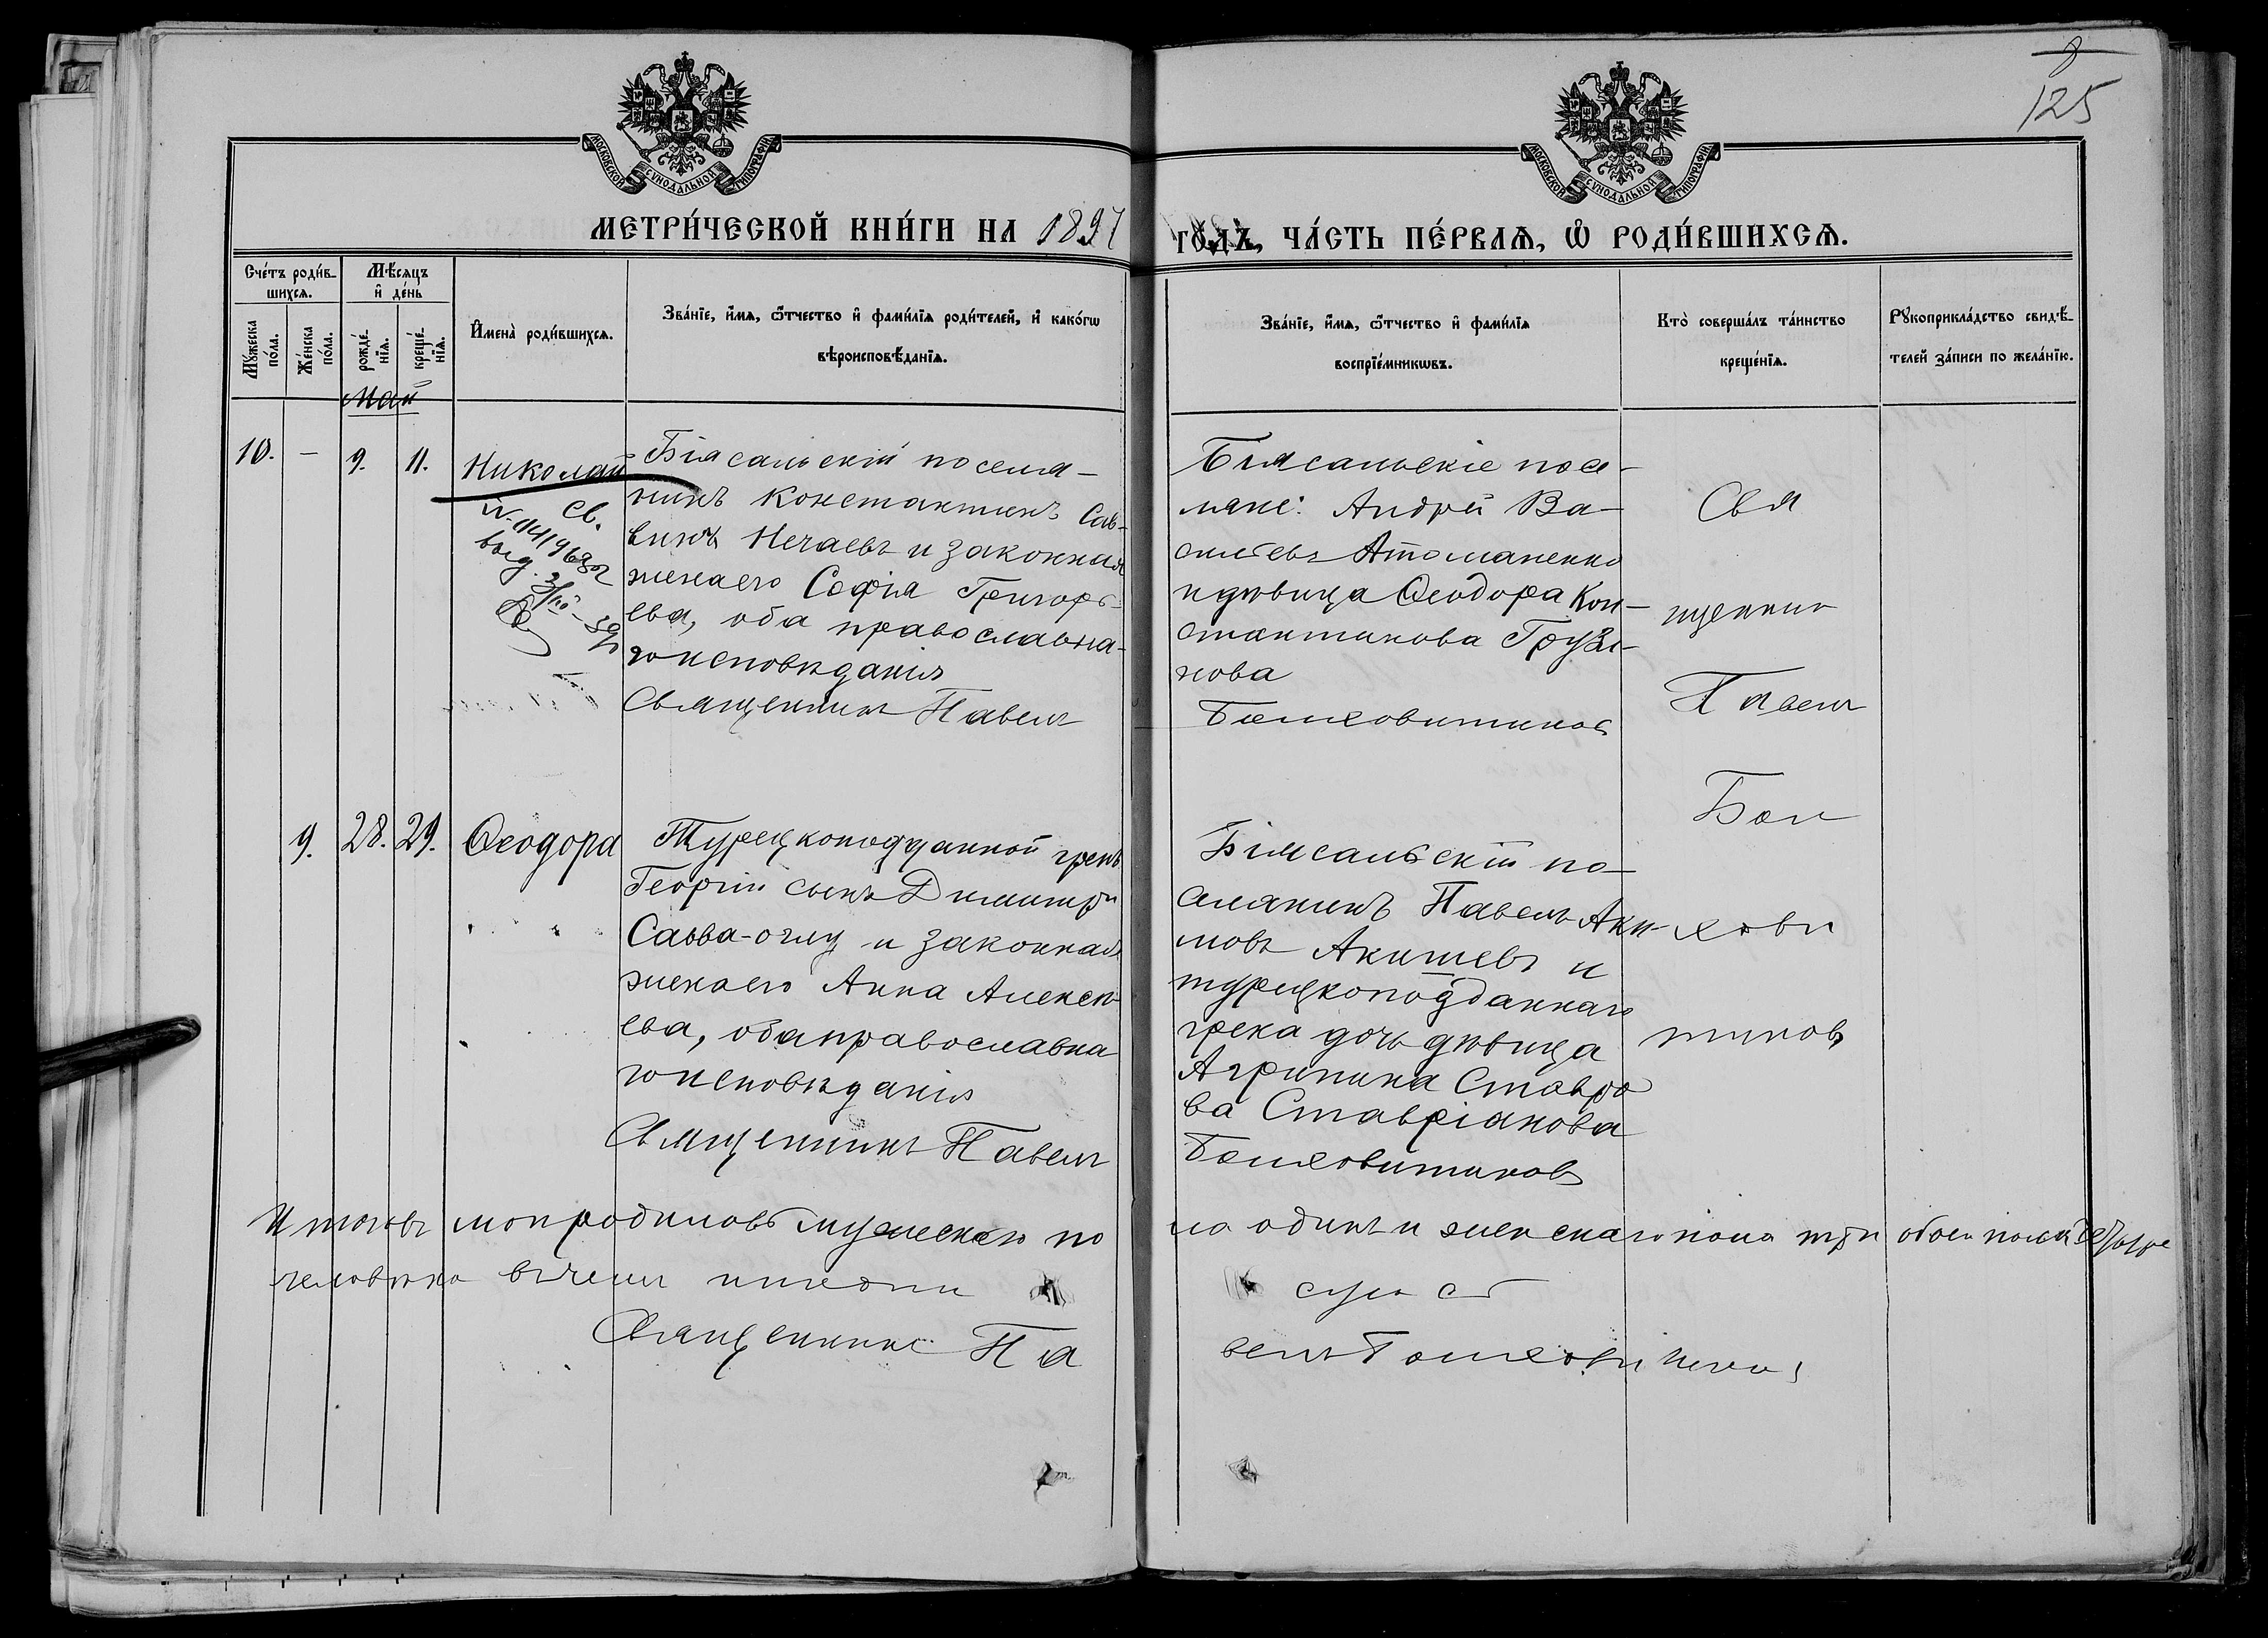 8
125
МОСКОВСКОЙ СѴНОДАЛЬНОЙ ТИПОГРАФІИ
МОСКОВСКОЙ СѴНОДАЛЬНОЙ ТИПОГРАФІИ
МЕТРИ́ЧЕСКОЙ КНИ́ГИ НА 1897
ГО́ДЪ, ЧА́СТЬ ПЕ́РВАѦ, Ѡ҆ РОДИ́ВШИХСѦ.
Сче́тъ роди́в-
шихсѧ.
Мѣ́сѧцъ
и҆ де́нь
Мꙋ́жеска
по́ла.
Же́нска
по́ла.
рожде́-
нїѧ.
креще́-
нїѧ.
И҆мена̀ роди́вшихсѧ.
Зва́нїе, и҆́мѧ, ѻ҆́тчество и҆ фами́лїѧ роди́телей, и҆ како́гѡ
вѣроисповѣ́данїѧ.
Зва́нїе, и҆́мѧ, ѻ҆́тчество и҆ фами́лїѧ
воспрїе́мникѡвъ.
Кто̀ соверша́лъ та́инство
креще́нїѧ.
Рꙋкоприкла́дство свидѣ́-
телей за́писи по жела́нїю.
Май
10. - 9. 11. Николай
св.
выд.
Біясальскій поселя-
нинъ Константинъ Сав-
винъ Нечаевъ и законная
жена его Софія Григорь-
ева, оба православна-
го исповѣданія
Священникъ Павелъ
Біясальскіе посе-
ляне: Андрей Ва-
сильевъ Атоманенко
и дѣвица Ѳеодора Кон-
стантинова Грузи-
нова
Болховитиновъ
Свя
щенник
Павелъ
Бол
хови
тиновъ
9. 28. 29. Ѳеодора
Турецкоподданной грекъ
Георгій сынъ Димитри
Савва-оглу и законная
жена его Анна Алексѣ-
ева, оба православна
го исповѣданія
Священникъ Павелъ
Біясальскій по-
селянинъ Павелъ Аки-
мовъ Акишевъ и
турецкоподданнаго
грека дочь дѣвица
Агрипина Ставро
ва Ставріанова
Болховитиновъ
Итого въ родилось мужескаго по
ла одинъ и женскаго пола три обоего пола четыре
человѣка въ чемъ и
Священникъ Па
велъ Болховитиновъ